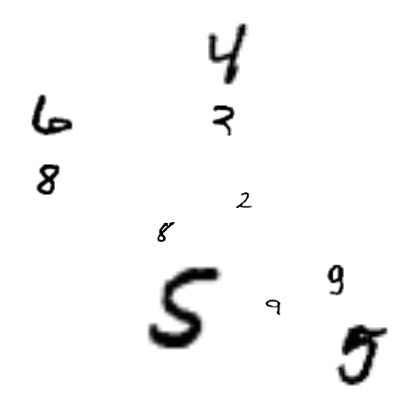 4
6
2
8
2
8
9
5
9
5